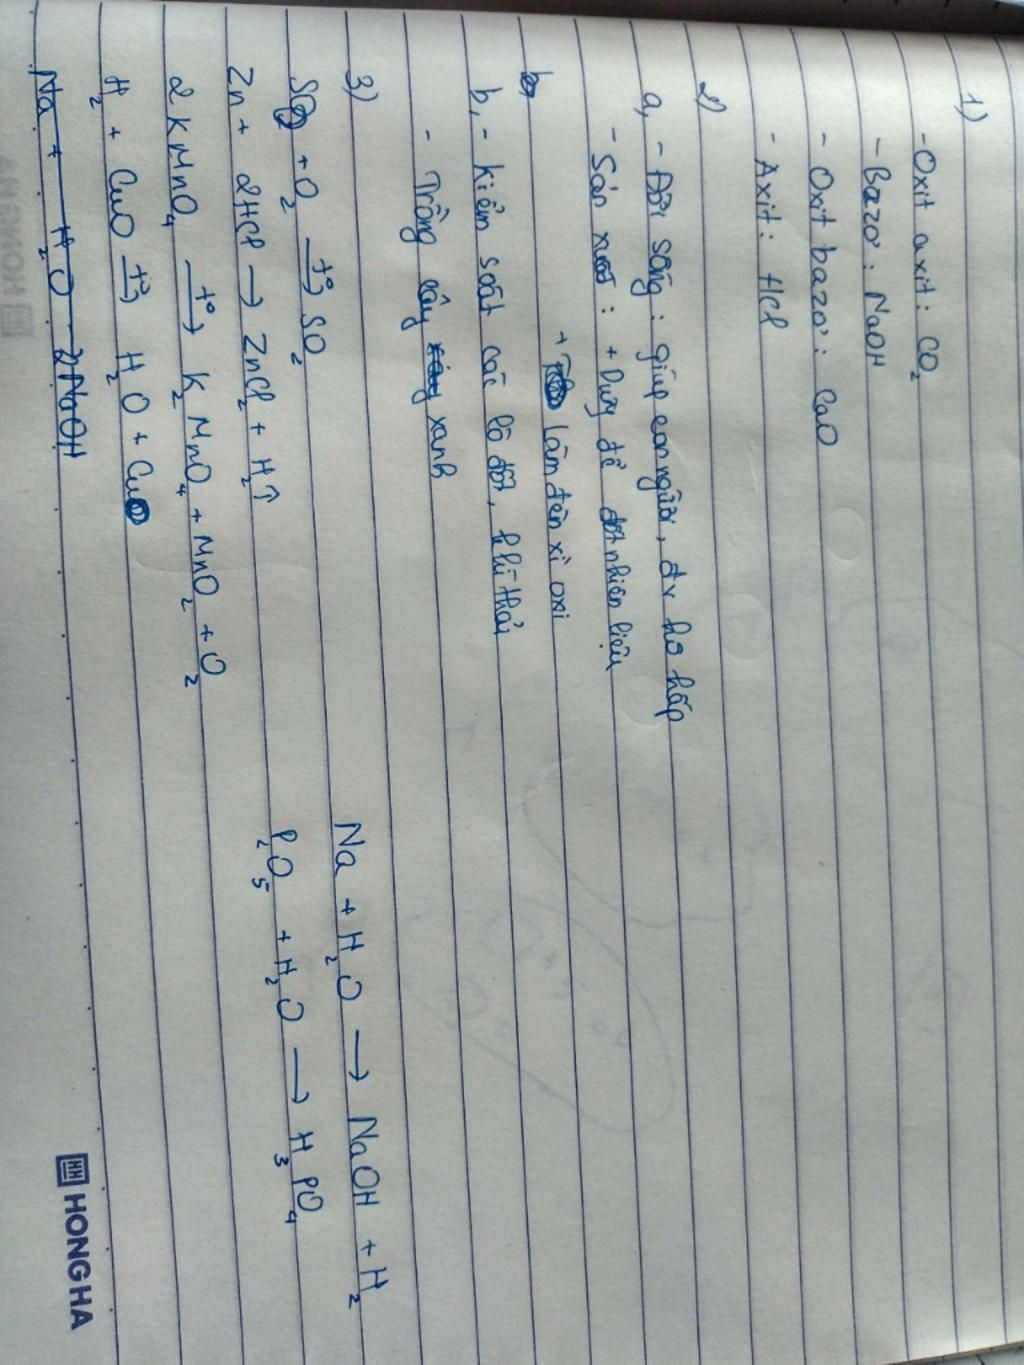 1)
- Oxit axit: CO2
- Bazơ: NaOH
- Oxit bazơ: CaO
- Axit: HCl
2)
a, - Đời sống: giúp con người, đv hô hấp
- Sản xuất: + Dùng để đốt nhiên liệu
+ Làm đèn xì oxi
b, - Kiểm soát các lò đốt, khí thải
- Trồng cây xanh
3)
S + O2 →t° SO2
Zn + 2HCl → ZnCl2 + H2↑
2KMnO4 →t° K2MnO4 + MnO2 + O2
H2 + CuO →t° H2O + Cu
Na + H2O 2NaOH
Na + H2O → NaOH + H2
P2O5 + H2O → H3PO4
HH HONG HA